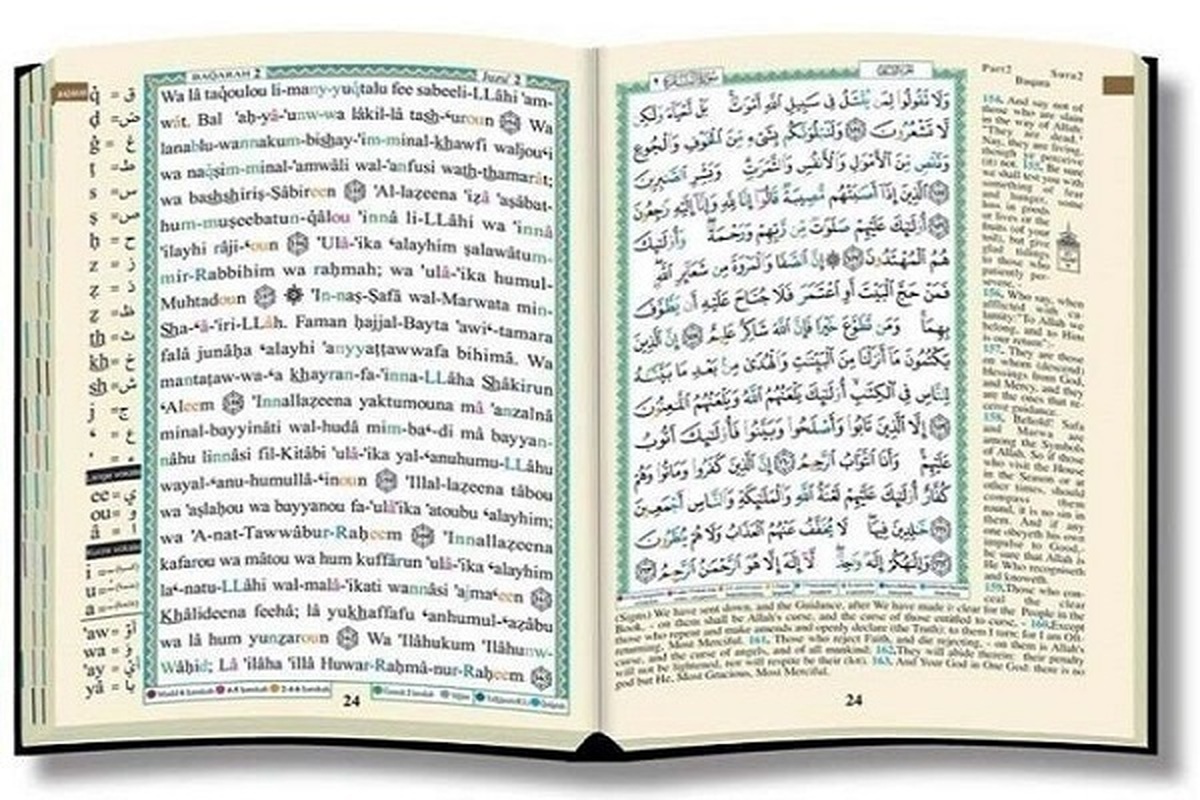 BAQARAH 2
Juzu' 2
q̇ = ق
ḍ = ض
ġ = غ
ṭ = ط
s = س
ṣ = ص
ḥ = ح
z = ز
ẓ = ظ
th = ث
kh = خ
sh = ش
j = ج
ee = ي
ou = و
â = ا
i =
u =
a =
'aw = أَوْ
wa = وَ
'ay = أَيْ
yâ = يا
Wa lâ taq̇oulou li-many-yuq̇talu fee sabeeli-LLâhi 'am-
wât. Bal 'aḥ-yâ-'unw-wa lâkil-lâ tash-ʻuroun Wa
lanablu-wannakum-bishay-'im-minal-khawfi waljouʻi
wa naq̇sim-minal-'amwâli wal-'anfusi wath-thamarât;
wa bashshiriṣ-Ṣâbireen 'Al-lazeena 'izâ 'aṣâbat-
hum-muṣeebatun-q̇âlou 'innâ li-LLâhi wa 'innâ
'ilayhi râji-ʻoun 'Ulâ-'ika ʻalayhim ṣalawâtum-
mir-Rabbihim wa raḥmah; wa 'ulâ-'ika humul-
Muhtadoun 'In-naṣ-Ṣafâ wal-Marwata min-
Sha-ʻâ-'iri-LLâh. Faman ḥajjal-Bayta 'awiʻ-tamara
falâ junâḥa ʻalayhi 'anyyaṭṭawwafa bihimâ. Wa
mantaṭaw-wa-ʻa khayran-fa-'inna-LLâha Shâkirun
ʻAleem 'Innallazeena yaktumouna mâ 'anzalnâ
minal-bayyinâti wal-hudâ mim-baʻ-di mâ bayyan-
nâhu linnâsi fil-Kitâbi 'ulâ-'ika yal-ʻanuhumu-LLâhu
wayal-ʻanu-humullâ-ʻinoun 'Illal-lazeena tâbou
wa 'aṣlaḥou wa bayyanou fa-'ulâ'ika 'atoubu ʻalayhim;
wa 'A-nat-Tawwâbur-Raḥeem 'Innallazeena
kafarou wa mâtou wa hum kuffârun 'ulâ-'ika ʻalayhim
laʻ-natu-LLâhi wal-malâ-'ikati wannâsi 'ajmaʻeen
Khâlideena feehâ; lâ yukhaffafu ʻanhumul-ʻazâbu
wa lâ hum yunẓaroun Wa 'Ilâhukum 'Ilâhunw-
Wâḥid; Lâ 'ilâha 'illâ Huwar-Raḥmâ-nur-Raḥeem
24
Part2 Sura2
Baqara
وَلَا تَقُولُوا لِمَن يُقْتَلُ فِي سَبِيلِ اللَّهِ أَمْوَاتٌ بَلْ أَحْيَاءٌ وَلَٰكِن
لَّا تَشْعُرُونَ ١٥٤ وَلَنَبْلُوَنَّكُم بِشَيْءٍ مِّنَ الْخَوْفِ وَالْجُوعِ
وَنَقْصٍ مِّنَ الْأَمْوَالِ وَالْأَنفُسِ وَالثَّمَرَاتِ وَبَشِّرِ الصَّابِرِينَ
١٥٥ الَّذِينَ إِذَا أَصَابَتْهُم مُّصِيبَةٌ قَالُوا إِنَّا لِلَّهِ وَإِنَّا إِلَيْهِ رَاجِعُونَ
١٥٦ أُولَٰئِكَ عَلَيْهِمْ صَلَوَاتٌ مِّن رَّبِّهِمْ وَرَحْمَةٌ وَأُولَٰئِكَ
هُمُ الْمُهْتَدُونَ ١٥٧ إِنَّ الصَّفَا وَالْمَرْوَةَ مِن شَعَائِرِ اللَّهِ
فَمَنْ حَجَّ الْبَيْتَ أَوِ اعْتَمَرَ فَلَا جُنَاحَ عَلَيْهِ أَن يَطَّوَّفَ
بِهِمَا وَمَن تَطَوَّعَ خَيْرًا فَإِنَّ اللَّهَ شَاكِرٌ عَلِيمٌ ١٥٨ إِنَّ الَّذِينَ
يَكْتُمُونَ مَا أَنزَلْنَا مِنَ الْبَيِّنَاتِ وَالْهُدَىٰ مِن بَعْدِ مَا بَيَّنَّاهُ
لِلنَّاسِ فِي الْكِتَابِ أُولَٰئِكَ يَلْعَنُهُمُ اللَّهُ وَيَلْعَنُهُمُ اللَّاعِنُونَ
١٥٩ إِلَّا الَّذِينَ تَابُوا وَأَصْلَحُوا وَبَيَّنُوا فَأُولَٰئِكَ أَتُوبُ
عَلَيْهِمْ وَأَنَا التَّوَّابُ الرَّحِيمُ ١٦٠ إِنَّ الَّذِينَ كَفَرُوا وَمَاتُوا وَهُمْ
كُفَّارٌ أُولَٰئِكَ عَلَيْهِمْ لَعْنَةُ اللَّهِ وَالْمَلَائِكَةِ وَالنَّاسِ أَجْمَعِينَ
١٦١ خَالِدِينَ فِيهَا لَا يُخَفَّفُ عَنْهُمُ الْعَذَابُ وَلَا هُمْ يُنظَرُونَ
١٦٢ وَإِلَٰهُكُمْ إِلَٰهٌ وَاحِدٌ لَّا إِلَٰهَ إِلَّا هُوَ الرَّحْمَٰنُ الرَّحِيمُ ١٦٣
154. And say not of
those who are slain
in the way of Allah:
"They are dead."
Nay, they are living,
though ye perceive
(it) not. 155. Be sure
we shall test you with
something of fear
and hunger, some
loss in goods
or lives or the
fruits (of your
toil), but give
glad tidings
to those who
patiently per-
severe, -
156. Who say, when
afflicted with ca-
lamity:"To Allah we
belong, and to Him
is our return": -
157. They are those
on whom (descend)
blessings from God,
and Mercy, and they
are the ones that re-
ceive guidance.
158. Behold! Safa
and Marwa are
among the Symbols
of Allah. So if those
who visit the House
in the Season or at
other times, should
compass them
round, it is no sin in
them. And if any
one obeyeth his own
impulse to Good,-
be sure that Allah is
He Who recogniseth
and knoweth.
159.Those who con-
ceal the clear
(Signs) We have sent down, and the Guidance, after We have made it clear for the People in the
Book, - on them shall be Allah's curse, and the curse of those entitled to curse, - 160.Except
those who repent and make amends and openly declare (the Truth): to them I turn; for I am Oft-
returning, Most Merciful. 161. Those who reject Faith, and die rejecting, - on them is Allah's
curse, and the curse of angels, and of all mankind; 162.They will abide therein: their penalty
will not be lightened, nor will respite be their (lot). 163. And Your God is One God: there is no
god but He, Most Gracious, Most Merciful.
24